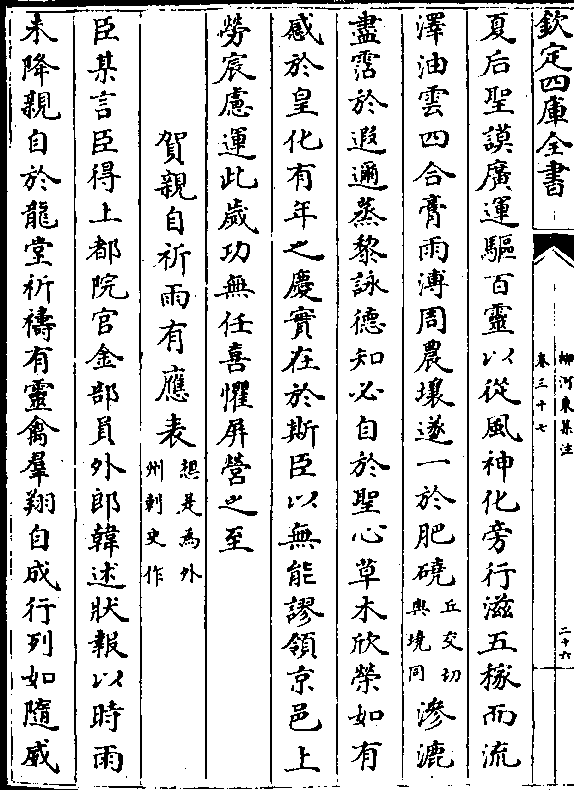 欽定四庫全書
柳河東集注
卷三十七
二十六
夏后聖謨廣運驅百靈以從風神化旁行滋五稼而流
澤油雲四合膏雨溥周農壤遂一於肥磽丘交切與境同滲漉
盡霑於遐邇蒸黎詠德知必自於聖心草木欣榮如有
感於皇化有年之慶實在於斯臣以無能謬領京邑上
勞宸慮運此歲功無任喜懼屏營之至
賀親自祈雨有應表想是為外州刺史作
臣某言臣得上都院官金部員外郎韓述狀報以時雨
未降親自於龍堂祈禱有靈禽羣翔自成行列如隨威